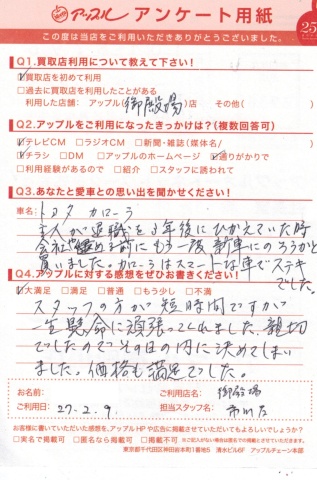 アップル アンケート用紙
この度は当店をご利用いただきありがとうございました。
Q1.買取店利用について教えて下さい!
☑買取店を初めて利用
□過去に買取店を利用したことがある
利用した店舗： アップル(御殿場)店 その他( )
Q2.アップルをご利用になったきっかけは?(複数回答可)
☑テレビCM □ラジオCM □新聞・雑誌(媒体名/ )
☑チラシ □DM □アップルのホームページ ☑通りがかりで
□利用経験があるので □紹介 □スタッフに誘われて
Q3.あなたと愛車との思い出を聞かせください!
車名： トヨタ カローラ
主人が退職を3年後にひかえていた時
会社 前にもう一度新車にのろうかと
買いました。カローラはスマートな車でステキ
でした。
Q4.アップルに対する感想をぜひお書きください!
☑大満足 □満足 □普通 □もう少し □不満
スタッフの方が短時間ですが
一生懸命に頑張ってくれました。親切
でしたのでその日の内に決めてしまい
ました。価格も満足でした。
お名前： ご利用店名： 御殿場
ご利用日： 27.2.9. 担当スタッフ名： 市川
お客様に書いていただいた感想を、アップルHPや広告に掲載させていただいてもよろしいでしょうか?
□実名で掲載可 □匿名なら掲載可 □掲載不可 ※ご記入がない場合は匿名での掲載とさせていただきます。
東京都千代田区神田岩本町1番地5 清水ビル6F アップルチェーン本部